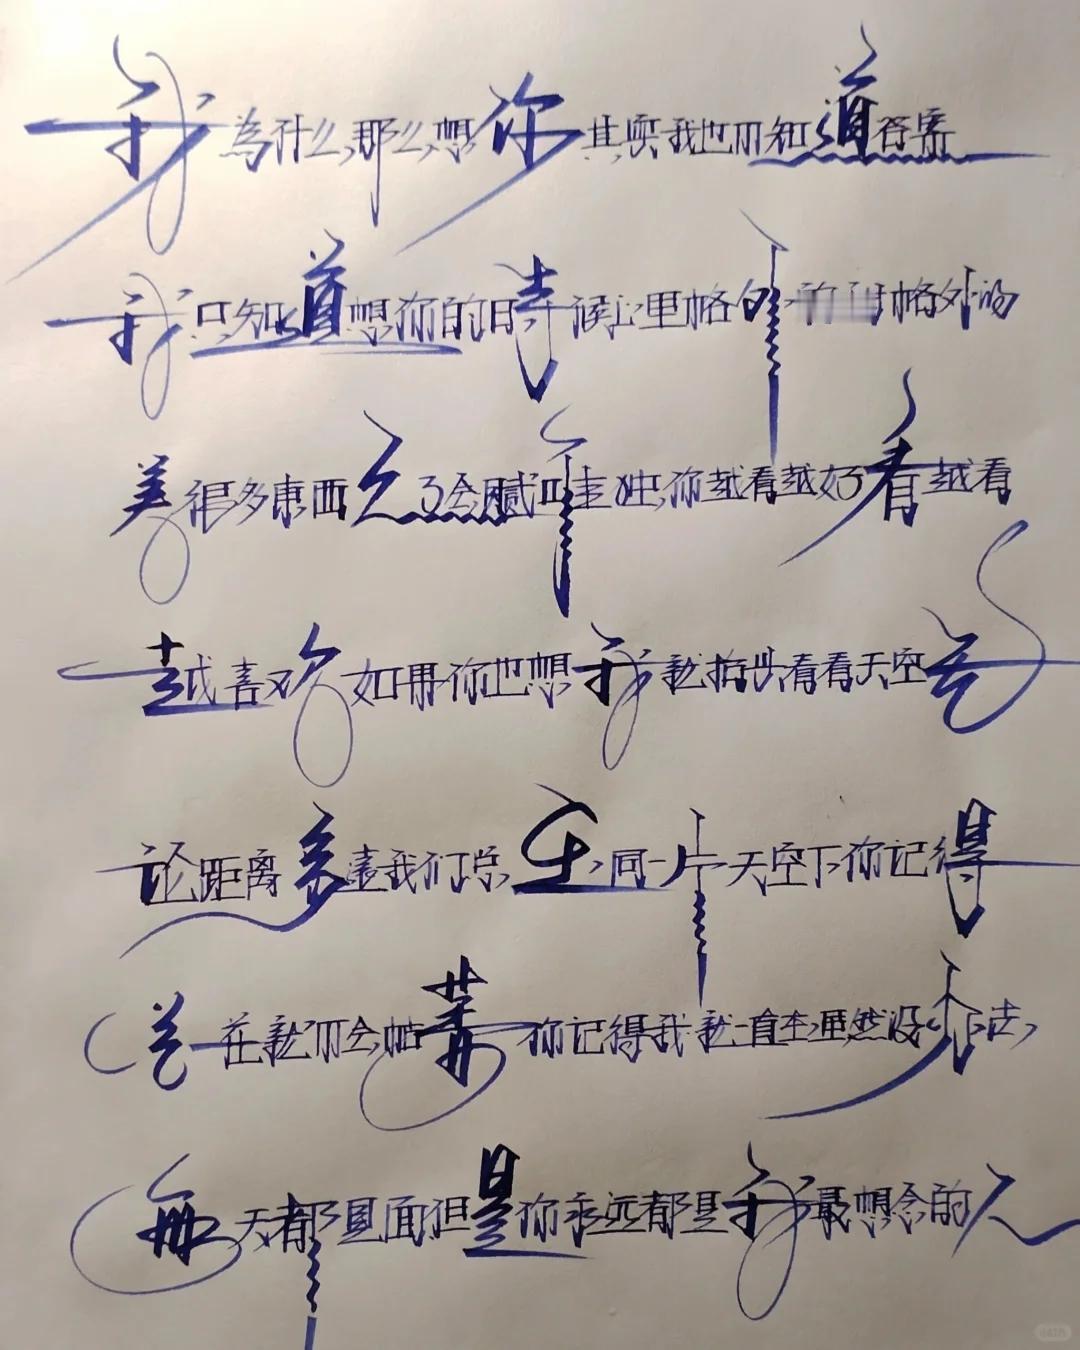 我為什么那么想你其实我也不知道答案
我只知道想你的时候心里格外的 时 格外的
美很多东西久了会腻可是唯独你越看越好看越看
越喜欢如果你也想我就抬头看看天空无
论距离多远我们总在同一片天空下你记得
爱一在就不会怕 你记得我就一直在虽然没办法
每天都见面但是你永远都是我最想念的人